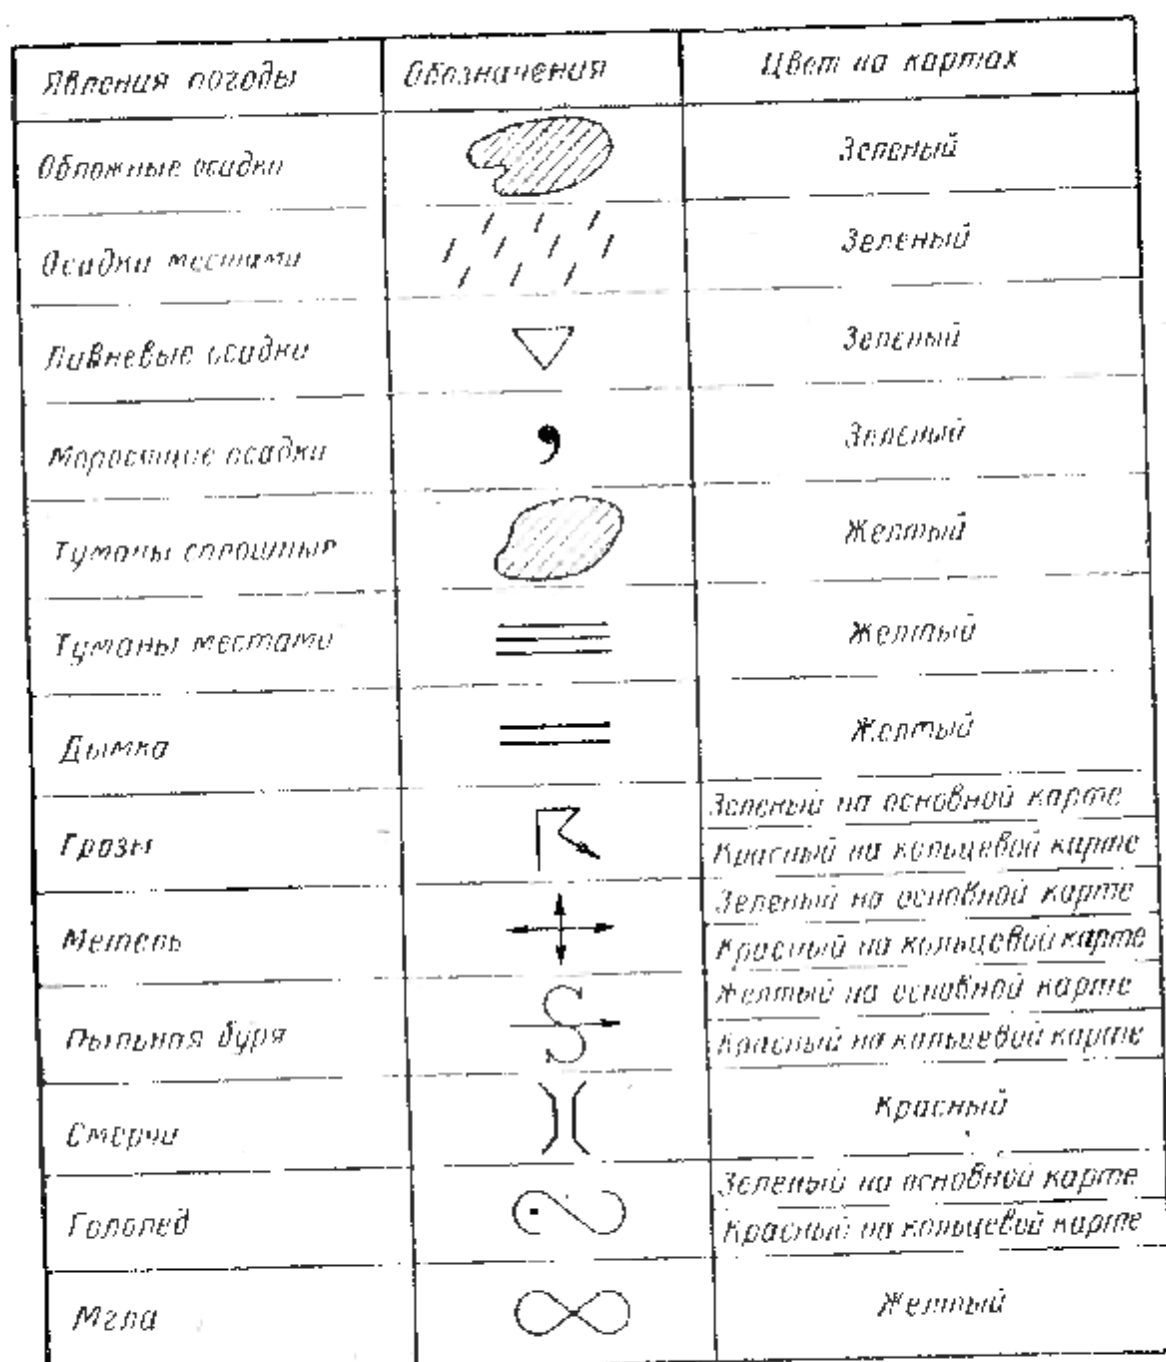 Явления погоды Обозначения Цвет на картах
Обложные осадки Зеленый
Осадки местами Зеленый
Ливневые осадки Зеленый
Моросящие осадки Зеленый
Туманы сплошные Желтый
Туманы местами Желтый
Дымка Желтый
Грозы Зеленый на основной карте
Красный на кольцевой карте
Метель Зеленый на основной карте
Красный на кольцевой карте
Пыльная буря Желтый на основной карте
Красный на кольцевой карте
Смерчи Красный
Гололед Зеленый на основной карте
Красный на кольцевой карте
Мгла Желтый